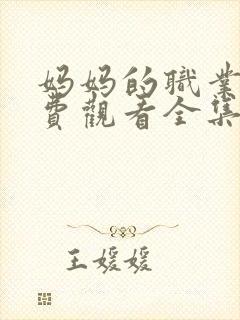 妈妈的職業
費觀看全集
王媛媛